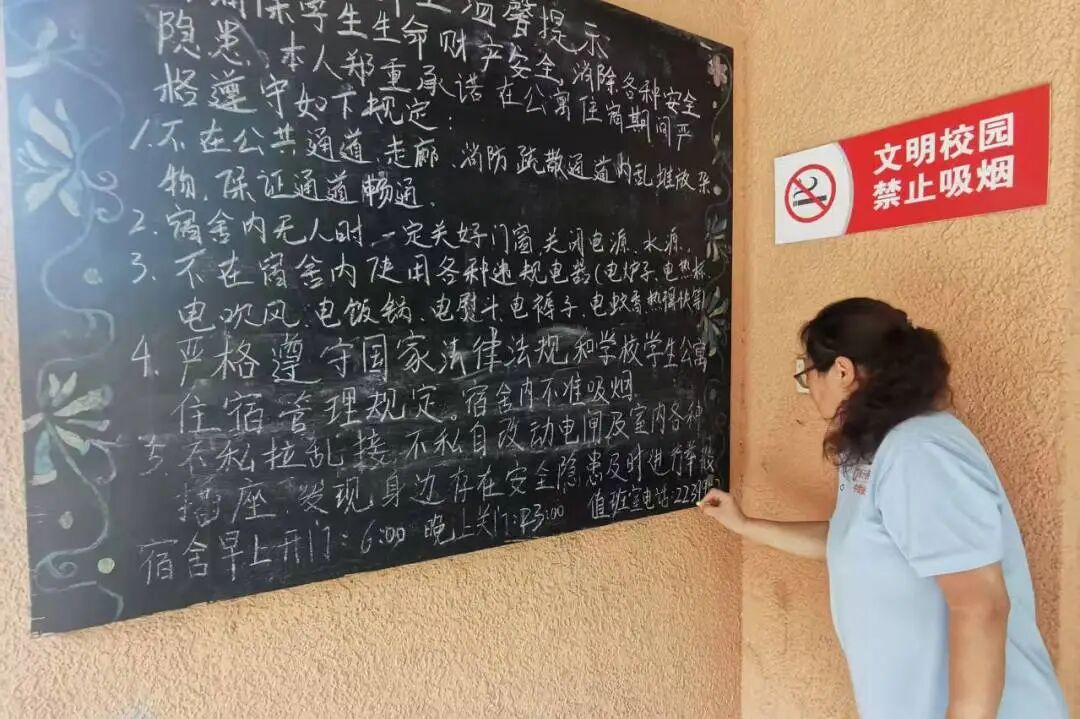 温馨提示
保学生生命财产安全,消除各种安全
隐患,本人郑重承诺在公寓住宿期间严
格遵守如下规定:
1.不在公共通道、走廊、消防疏散通道内乱堆放杂
物,保证通道畅通.
2.宿舍内无人时,一定关好门窗,关闭电源、水源.
3.不在宿舍内使用各种违规电器(电炉子、电热杯、
电吹风、电饭锅、电熨斗、电褥子、电蚊香、热得快等)
4.严格遵守国家法律法规和学校学生公寓
住宿管理规定。宿舍内不准吸烟.
5.不私拉乱接,不私自改动电闸及室内各种
插座.发现身边存在安全隐患及时进行举报
宿舍早上开门:6:00 晚上关门:23:00 值班室电话:
文明校园
禁止吸烟